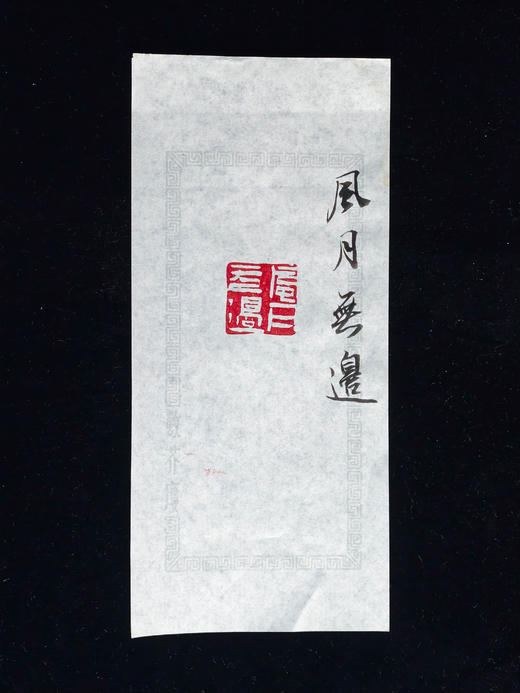 風月無邊
風月無邊